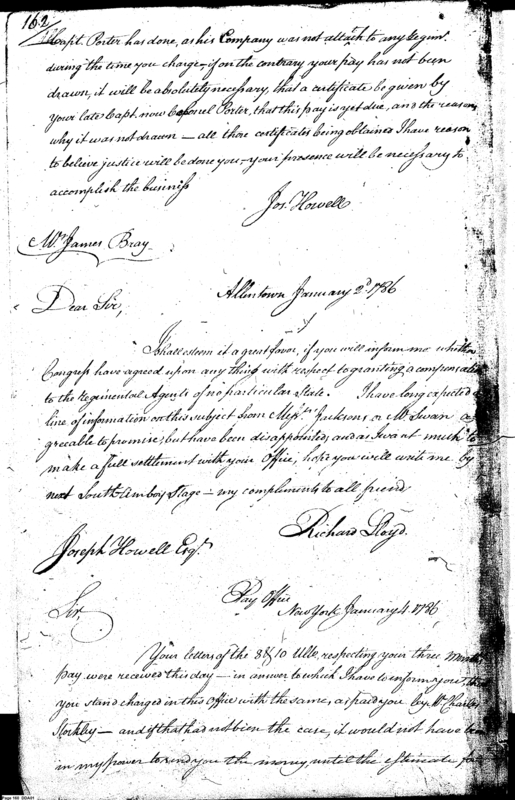 162
Capt. Porter has done, as his Company was not attach'd to any Regimt.
during the time you charge – if on the contrary your pay has not been
drawn, it will be absolutely necessary, that a certificate be given by
your late Capt. now Colonel Porter, that this pay is yet due, and the reasons
why it was not drawn – all those certificates being obtained I have reason
to believe justice will be done you – your presence will be necessary to
accomplish the business
Jos. Howell
Mr. James Bray
Allentown January 2d. 1786
Dear Sir,
I shall esteem it a great favor, if you will inform me whether
Congress have agreed upon any thing with respect to granting a compensation
to the Regimental Agents of no particular State. I have long expected a
line of information on this subject from Messrs. Jacksons, or Mr. Swan a-
greeable to promise, but have been disappointed, and as I want much to
make a full settlement with your Office, hope you will write me by
next South Amboy Stage – my compliments to all friend
Richard Lloyd.
Joseph Howell Esqr.
Pay Office
New York January 4. 1786
Sir,
Your letters of the 8 & 10 Ulto. respecting your three Months
pay were received this day – in answer to which I have to inform you, that
you stand charged in this Office with the same, as paid you by Mr. Charles
Stockley – and if that had not been the case, it would not have been
in my power to send you the money until the estimate for
Page 169 DDA01